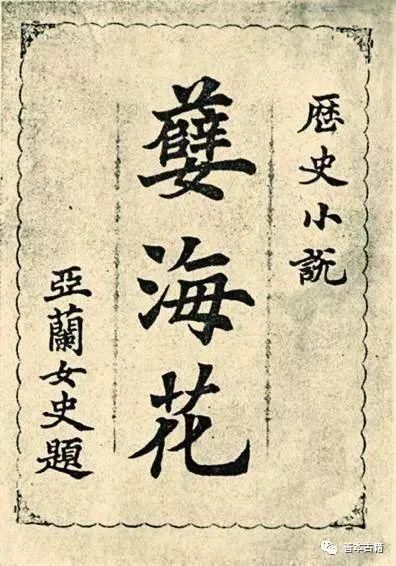 歷史小説
孽海花
亞蘭女史題
善本古籍